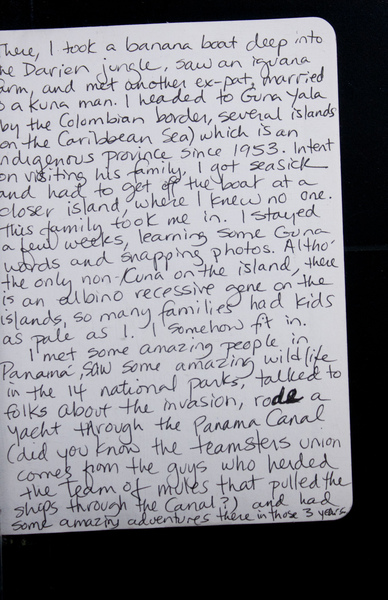 There, I took a banana boat deep into
the Darien jungle, saw an iguana
farm, and met another ex-pat, married
to a Kuna man. I headed to Guna Yala
(by the Colombian border, several islands
on the Caribbean Sea) which is an
indigenous province since 1953. Intent
on visiting his family, I got seasick
and had to get off the boat at a
closer island, where I knew no one.
This family took me in. I stayed
a few weeks, learning some Guna
words and snapping photos. Altho'
the only non-Kuna on the island, there
is an albino recessive gene on the
islands, so many families had kids
as pale as I. I somehow fit in.
I met some amazing people in
Panama, saw some amazing wildlife
in the 14 national parks, talked to
folks about the invasion, rode a
yacht through the Panama Canal
(did you know the teamsters union
comes from the guys who herded
the team of mules that pulled the
ships through the Canal?) and had
some amazing adventures there in those 3 years